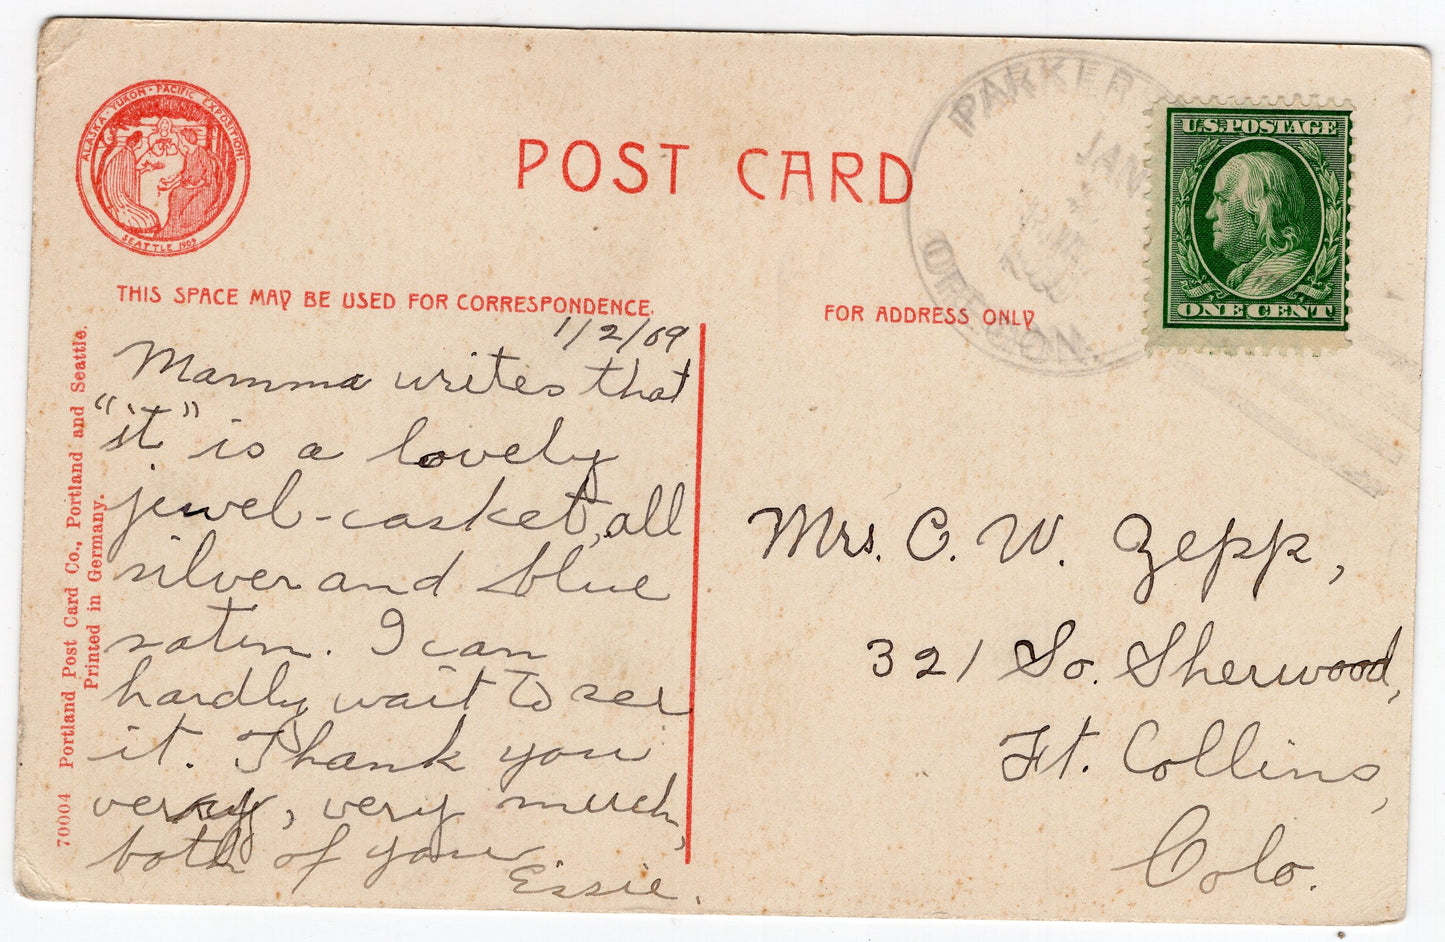 ALASKA · YUKON · PACIFIC EXPOSITION
SEATTLE 1909
POST CARD
PARKER
JAN
OREGON.
U.S. POSTAGE
ONE CENT
THIS SPACE MAY BE USED FOR CORRESPONDENCE.
FOR ADDRESS ONLY
1/2/09
Mamma writes that
"it" is a lovely
jewel-casket, all
silver and blue
satin. I can
hardly wait to see
it. Thank you
very, very much,
both of you
Essie.
Mrs. C. W. Zepp,
321 So. Sherwood,
Ft. Collins,
Colo.
70004 Portland Post Card Co., Portland and Seattle.
Printed in Germany.